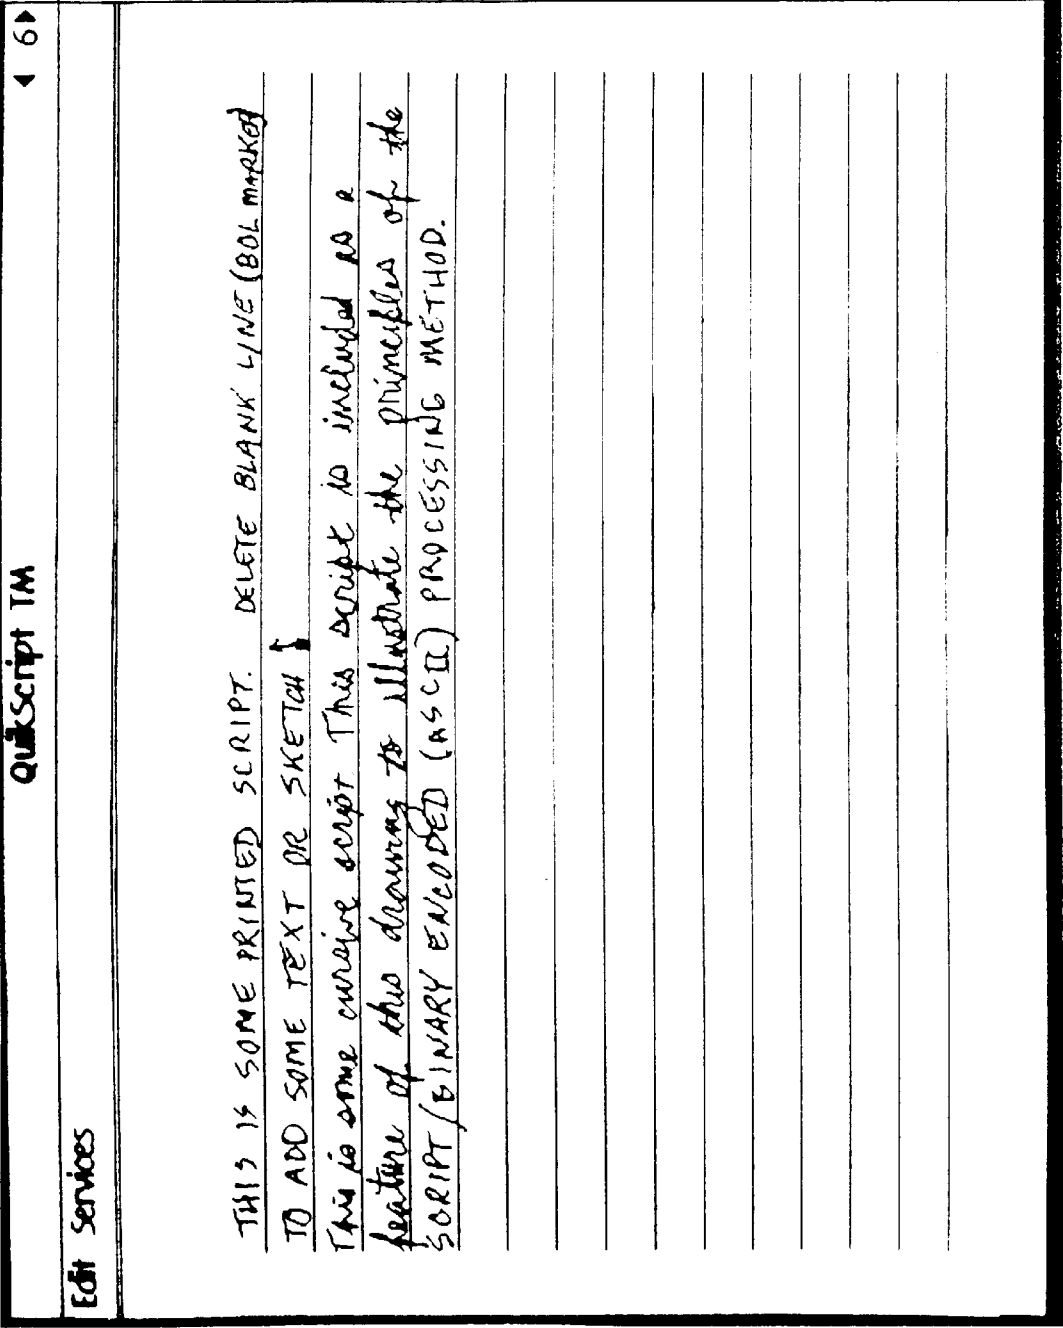 QuikScript TM
◄ 6►
Edit Services
THIS IS SOME PRINTED SCRIPT. DELETE BLANK LINE (BOL MARKER)
TO ADD SOME TEXT OR SKETCH
This is some cursive script This script is included as a
feature of this drawing to illustrate the principles of the
SCRIPT/BINARY ENCODED (ASCII) PROCESSING METHOD.